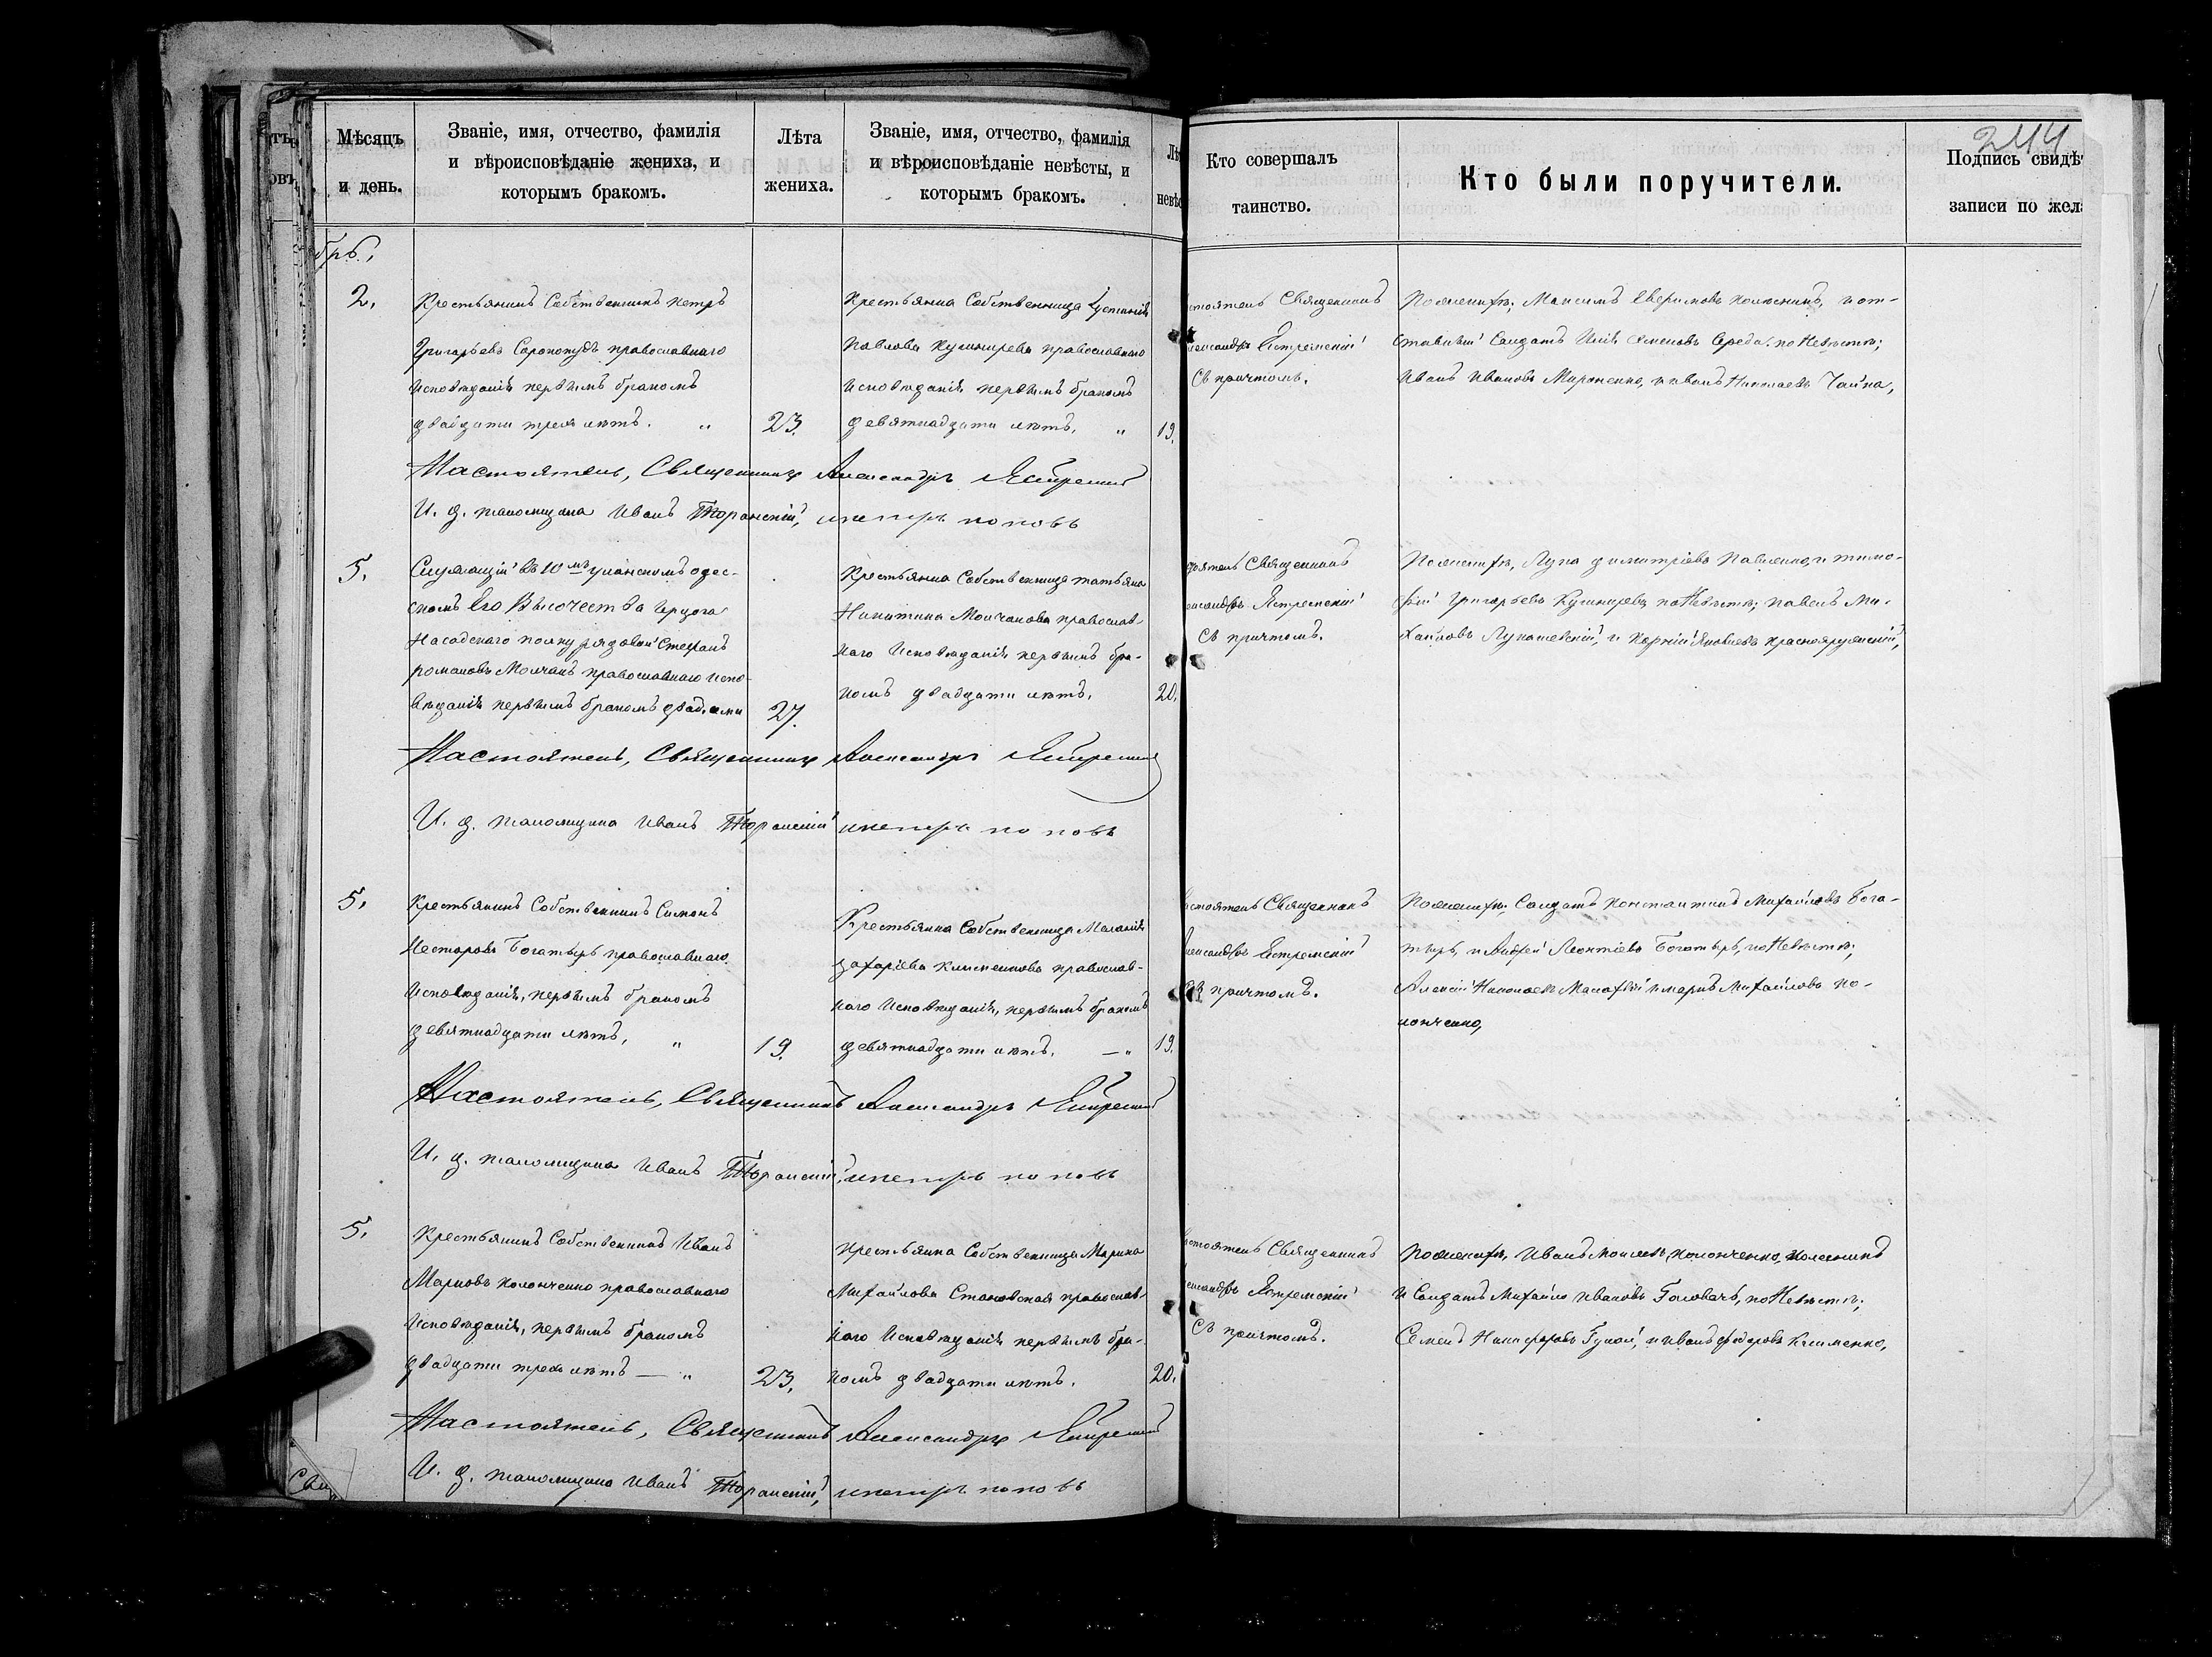 244
Мѣсяцъ
и день.
Званіе, имя, отчество, фамилія
и вѣроисповѣданіе жениха, и
которымъ бракомъ.
Лѣта
жениха.
Званіе, имя, отчество, фамилія
и вѣроисповѣданіе невѣсты, и
которымъ бракомъ.
Кто совершалъ
таинство.
Кто были поручители.
Подпись свидѣ
записи по жел
бръ.
2.
Крестьянинъ Собственникъ Петръ
Григорьевъ Сорокопудъ православнаго
исповѣданія первымъ бракомъ
двадцати трехъ лѣтъ. "
23.
Крестьянка Собственница Іустинія
Павлова Кушнирева православнаго
исповѣданія первымъ бракомъ
девятнадцати лѣтъ. "
19.
стоятель Священникъ
лександръ Ястремскій
Съ причтомъ.
По женихѣ; Максимъ
и от-
ставный Солдатъ
Середа. по Невѣстѣ;
Иванъ Ивановъ Мироненко, и иванъ Николаевъ Чайка,
Настоятель, Священникъ Александръ Ястремскій
И. д. псаломщика Иванъ Торанскій, и петръ поповъ
5.
Служащій въ 10мъ уланскомъ одес-
скомъ Его Высочества Герцога
Насадскаго полку рядовой Стефанъ
романовъ Молчанъ православнаго испо-
вѣданія первымъ бракомъ
27.
Крестьянка Собственница татьяна
Никитина Молчанова православ-
наго Исповѣданія первымъ бра-
комъ двадцати лѣтъ.
20.
оятель Священникъ
ександръ Ястремскій
Съ причтомъ.
По женихѣ, Лука димитріевъ Павленко, и тимо-
фей Григорьевъ Кушниревъ по Невѣстѣ; павелъ Ми-
хайловъ Лукашевскій, и Корній Яковлевъ Краснояружскій,
Настоятель, Священникъ Александръ Ястремскій
И. д. псаломщика Иванъ Торанскій и петръ поповъ
5.
Крестьянинъ Собственникъ Симонъ
Несторовъ Богатырь православнаго
Исповѣданія, первымъ бракомъ
девятнадцати лѣтъ, "
19.
Крестьянка Собственница Меланія
захаріева Клименкова православ-
наго Исповѣданія, первымъ бракомъ
девятнадцати лѣтъ. — "
19.
стоятель Священникъ
лександръ Ястремскій
Съ причтомъ.
По женихѣ; Солдатъ Константинъ Михайловъ Бога-
тырь, и Андрей Леонтіевъ Богатырь, по Невѣстѣ;
Алексій Николаевъ Малафій и маркъ Михайловъ Ко-
лонченко,
Настоятель, Священникъ Александръ Ястремскій
И. д. псаломщика Иванъ Торанскій, и петръ поповъ
5.
Крестьянинъ Собственникъ Иванъ
Марковъ Колонченко православнаго
Исповѣданія, первымъ бракомъ
двадцати трехъ лѣтъ — "
23.
Крестьянка Собственница Марина
Михайлова Становская православ-
наго Исповѣданія первымъ бра-
комъ двадцати лѣтъ.
20.
стоятель Священникъ
ександръ Ястремскій
Съ причтомъ.
По женихѣ, Иванъ Моисеевъ Колонченко,
и Солдатъ Михайло Ивановъ Головачъ, по Невѣстѣ;
Семенъ Никифоровъ Гукой, и Иванъ федоровъ Клименко,
Настоятель, Священникъ Александръ Ястремскій
И. д. псаломщика Иванъ Торанскій, и петръ поповъ